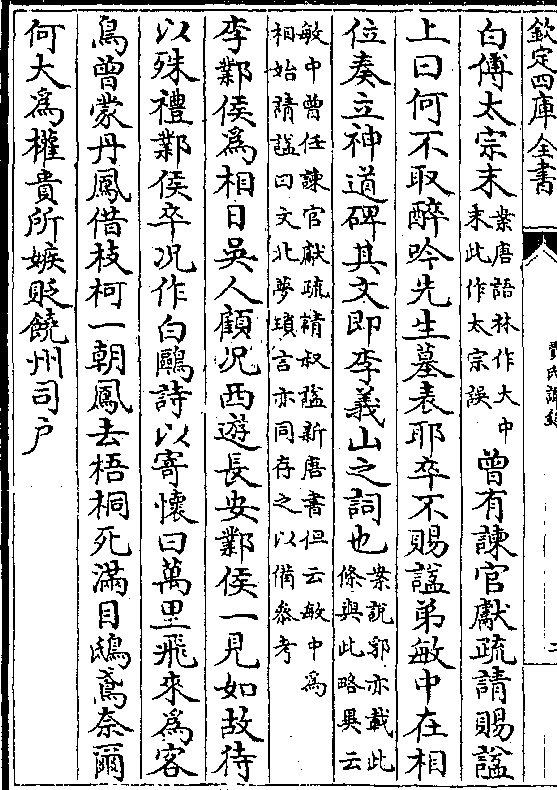 欽定四庫全書
賈氏談録
白傅太宗末案唐語林作大中末此作太宗誤曾有諫官獻疏請賜諡
上曰何不取醉吟先生墓表耶卒不賜諡弟敏中在相
位奏立神道碑其文即李義山之詞也案說郛亦載此條與此略異云
敏中曾任諫官獻疏精叔諡新唐書但云敏中為
相始請諡曰文北夢瑣言亦同存之以備參考
李鄴侯為相日吳人顧况西遊長安鄴侯一見如故待
以殊禮鄴侯卒况作白鷗詩以寄懷曰萬里飛來為客
鳥曾蒙丹鳳借枝柯一朝鳳去梧桐死滿目鴟鳶奈爾
何大為權貴所嫉貶饒州司户